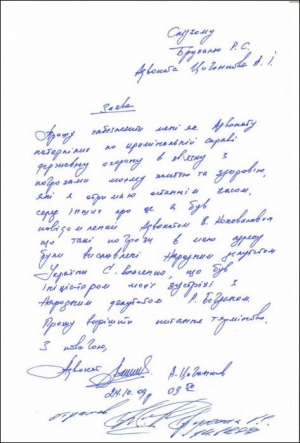 Слідчому
Бручалю Р.С.
Адвоката Циганкова А.І.
Заява
Прошу забезпечити мені як Адвокату
потерпілих по кримінальній справі
державну охорону в зв'язку з
погрозами моєму життю та здоров'ю,
які я отримую останнім часом.
серед інших про це я був
повідомлений Адвокатом В.
що такі погрози в мою адресу
були висловлені Народним депутатом
України Є. що був
ініціатором моєї зустрічі з
Народним депутатом Р.
Прошу вирішити питання терміново.
З повагою,
Адвокат А. Циганков
24.10.09р
отримав